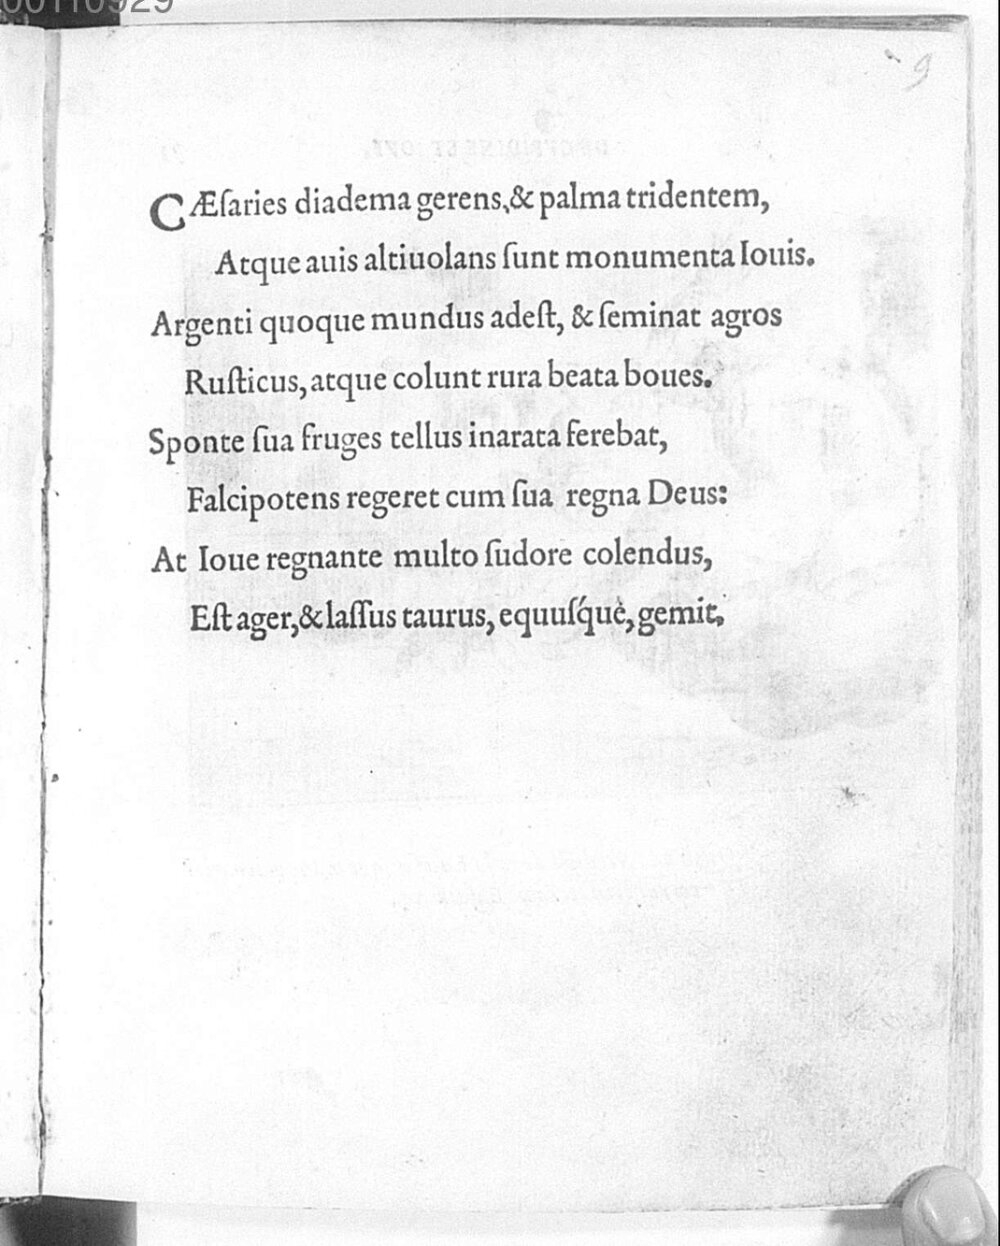 00110929
9
CÆſaries diadema gerens, & palma tridentem,
Atque auis altiuolans ſunt monumenta Iouis.
Argenti quoque mundus adeſt, & ſeminat agros
Ruſticus, atque colunt rura beata boues.
Sponte ſua fruges tellus inarata ferebat,
Falcipotens regeret cum ſua regna Deus:
At Ioue regnante multo ſudore colendus,
Eſt ager, & laſſus taurus, equuſq́uè, gemit.